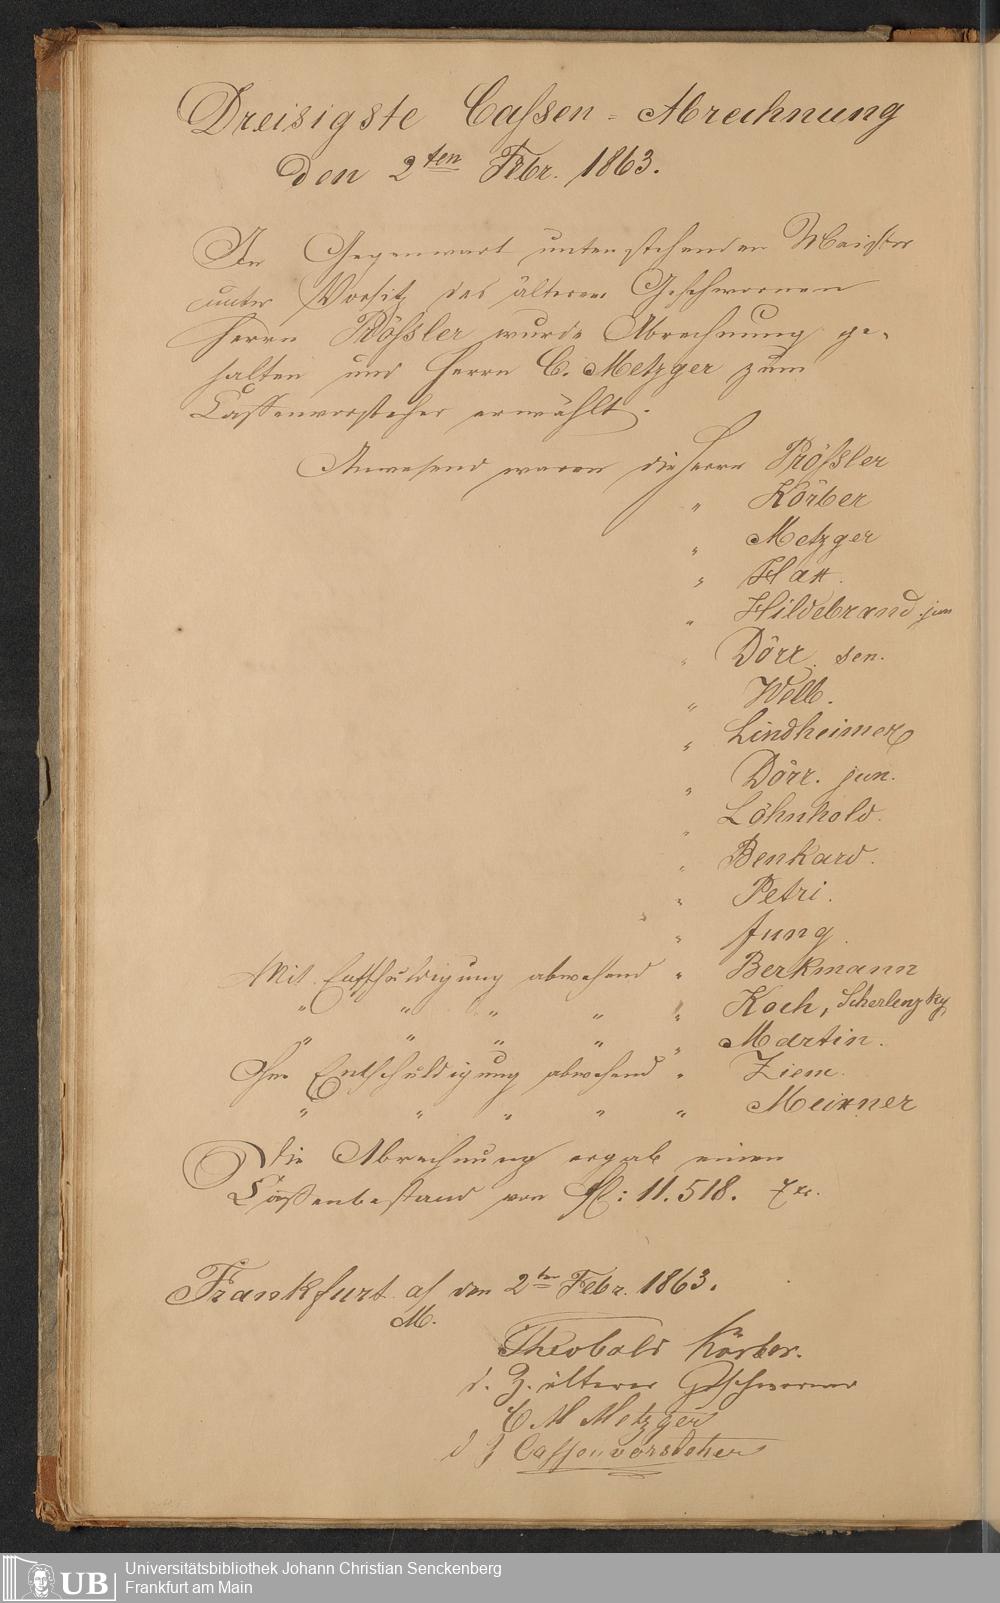 Dreisigste Cassen-Abrechnung
den 2ten Febr. 1863.
In Gegenwart untenstehender Meister
unter Vorsitz des älteren Geschwornen
Herrn Rössler wurde Abrechnung ge-
halten und Herrn C. Metzger zum
Cassenvorsteher erwählt.
Anwesend waren die Herrn Rössler
" Körber
" Metzger
" Hatt.
" Hildebrand jun
" Dörr. sen.
" Welb.
" Lindheimer
" Dörr. jun.
" Löhnhold.
" Benkard.
" Petri.
" Jung.
Mit Entschuldigung abwesend " Berkmann
" " " " " Koch, Scherlenzky
" " " " " Martin.
Ohne Entschuldigung abwesend " Ziem.
" " " " " Meixner
Die Abrechnung ergab einen
Cassenbestand von fl: 11.518. 7 xr.
Frankfurt a/ den 2ten Febr. 1863.
M.
Theobald Körber.
d. Z. älterer Geschworner
C. M Metzger
d Z Cassenvorsteher
UB
Universitätsbibliothek Johann Christian Senckenberg
Frankfurt am Main